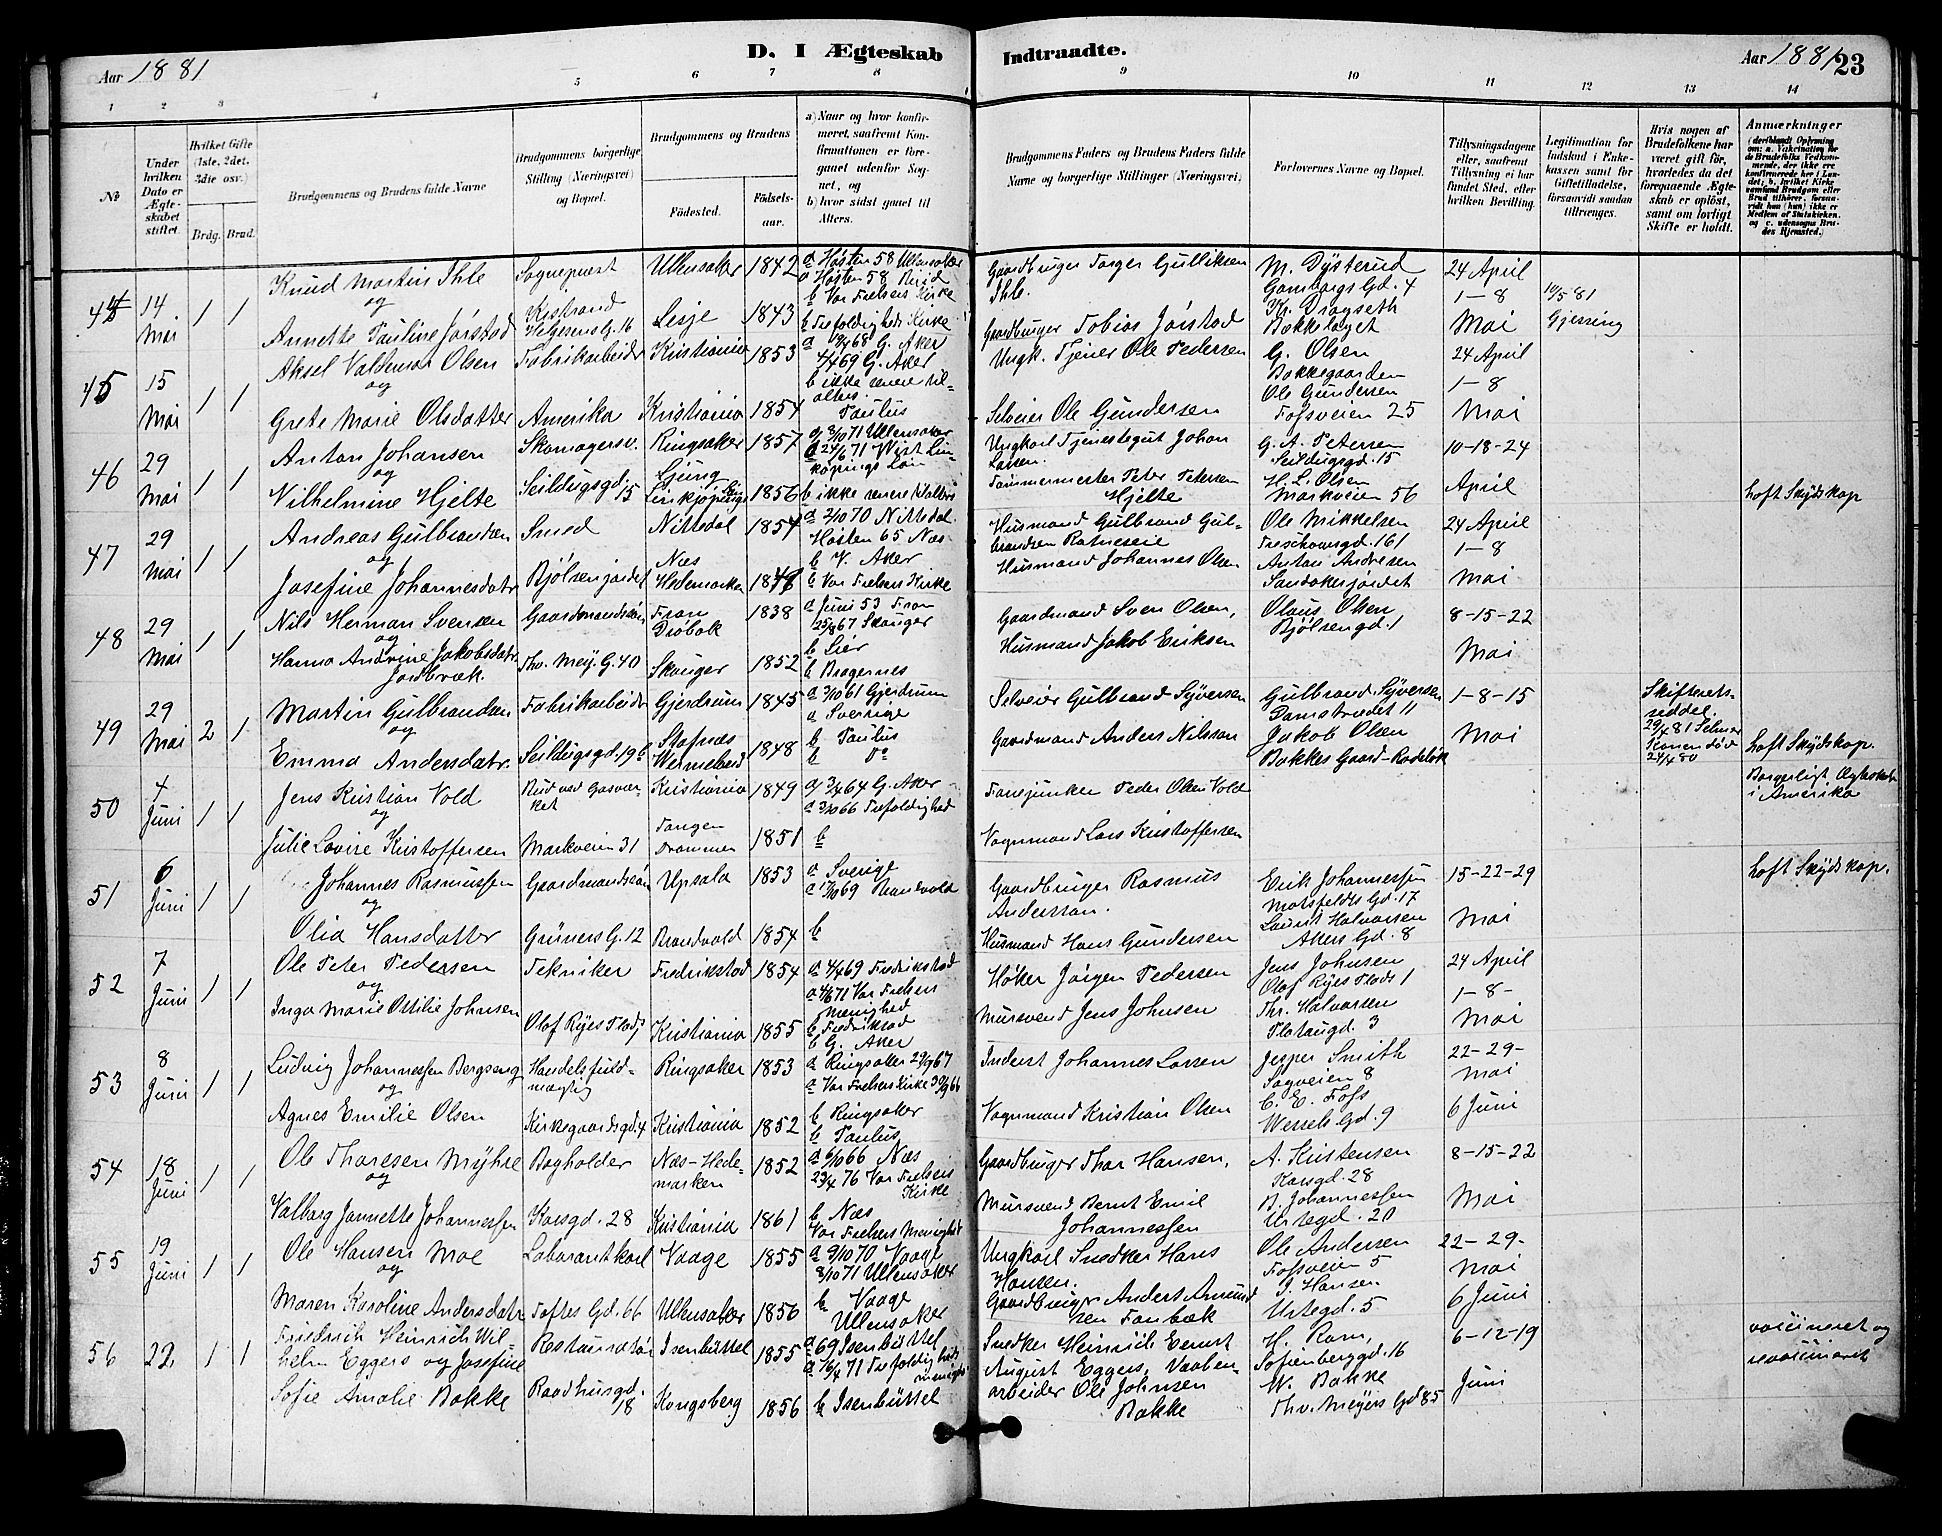 Aar 1881
D. I Ægteskab Indtraadte.
Aar 1881
23
1 2 3 4 5 6 7 8 9 10 11 12 13 14
№
Under hvilken Dato er Ægteskabet stiftet.
Hvilket Gifte (1ste, 2det, 3die osv.)
Brdg. Brud.
Brudgommens og Brudens fulde Navne
Brudgommens borgerlige Stilling (Næringsvei) og Bopæl.
Brudgommens og Brudens
Fødested. Fødselsaar.
a) Naar og hvor konfirmeret, saafremt Konfirmationen er foregaaet udenfor Sognet, og
b) hvor sidst gaaet til Alters.
Brudgommens Faders og Brudens Faders fulde Navne og borgerlige Stillinger (Næringsvei)
Forlovernes Navne og Bopæl.
Tillysningsdagene eller, saafremt Tillysning ei har fundet Sted, efter hvilken Bevilling.
Legitimation for Indskud i Enkekassen samt for Giftetilladelse, forsaavidt saadan tiltrænges.
Hvis nogen af Brudefolkene har været gift før, hvorledes da det foregaaende Ægteskab er opløst, samt om lovligt Skifte er holdt.
Anmærkninger
44 14 Mai 1 1
Knud Martin Ihle
og
Annette Pauline Jørstad
Sognepræst
Kistrand
Helgesens G. 16
Ullensaker 1842
Lesje 1843
a Høsten 58 Ullensaker
a Høsten 58 Birid
b Vor Frelsers Kirke
b Trefoldigheds Kirke
Gaardbruger Torger Gulliksen
Ihle.
Gaardbruger Tobias Jørstad
M. Dysterud
Gamborgs Gd. 4
Kr. Dragseth
Bakkelaget
24 April
1-8
Mai
10/5 81
Gjessing
45 15 Mai 1 1
Aksel Valdemar Olsen
og
Grete Marie Olsdatter
Fabrikarbeider
Amerika
Kristiania 1853
Kristiania 1851
4/4 69 G. Aker
b ikke senere til-
alters.
Paulus
Ungk. Tjener Ole Pedersen
Selveier Ole Gundersen
G. Olsen
Bakkegaarden
Ole Gundersen
Fossveien 25
24 April
1-8
Mai
46 29 Mai 1 1
Anton Johansen
og
Vilhelmine Hjelte
Skomagersv.
Seildugsgd. 15
Ringsaker 1857
Ljung
Linkjøpings 1856
a 8/10 71 Ullensaker
b ikke senere tilalters
Ungkarl Tjenestegut Johan
Larsen.
Tømmermester Peter Petersen
Hjelte
G. A. Petersen
Seildugsgd. 15
H. L. Olsen
Markveien 56
10-18-24
April
loft Skydskap
47 29 Mai 1 1
Andreas Gulbrandsen
og
Josefine Johannesdatr
Smed
Bjølsenjordet
Nittedal 1854
Næs
Hedemarken 1848
a 2/10 70 Nittedal.
Høsten 65 Næs
b V. Aker
b Vor Frelsers Kirke
Husmand Gulbrand Gul-
brandsen
Husmand Johannes Olsen
Ole Mikkelsen
Treschowsgd. 161
Anton Andresen
Sandakerjordet
24 April
1-8
Mai
48 29 Mai 1 1
Nils Herman Svensen
og
Hanna Andrine Jakobsdatr.
Jordbræk.
Gaardmandssøn
Thv. Mey. G. 40
Fron
Drøbak 1838
Skouger 1852
a Juni 53 Fron
25/8 67 Skouger
b Lier
b Bragernes
Gaardmand Sven Olsen,
Husmand Jakob Eriksen
Olaus Olsen
Bjølsengd. 1
8-15-22
Mai
49 29 Mai 2 1
Martin Gulbrandsen
og
Emma Andersdatr.
Fabrikarbeider
Seildugsgd. 19 b
Gjerdrum 1845
Stafnæs
Wermeland 1848
a 3/10 61 Gjerdrum
a Sverige
b Paulus
b Do
Selveier Gulbrand Syversen
Gaardmand Anders Nilsson
Gulbrand Syversen
Damstrædet 11
Jakob Olsen
Bakkes Gaard-Rodeløk
1-8-15
Mai
Skifterets-
seddel.
Konen død
24/4 80
loft Skydskap.
50 4 Juni 1 1
Jens Kristian Vold
og
Julie Lovise Kristoffersen
Bud ved Gasvær-
ket
Markveien 31
Kristiania 1849
Tangen
Drammen 1851
a 3/4 64 G. Aker
a 3/10 66 Trefoldighed
b
Fanejunker Peder Olsen Vold
Vognmand Lars Kristoffersen
Borgerligt Ægteskab
i Amerika
51 6 Juni 1 1
Johannes Rasmussen
og
Olia Hansdatter
Gaardmandssøn
Grüners G. 12
Upsala 1853
Brandvold 1854
a Sverige
a 17/10 69 Brandvold
b
Gaardbruger Rasmus
Andersson.
Husmand Hans Gundersen
Erik Johannessen
Motsfeldts Gd. 17
Halvorsen
Akers Gd. 8
15-22-29
Mai
loft Skydskap.
52 7 Juni 1 1
Ole Peter Pedersen
og
Inga Marie Ottilie Johnsen
Tekniker
Olaf Ryes Plads 1
Fredrikstad 1854
Kristiania 1855
a 4/4 69 Fredrikstad
a 4/6 71 Vor Frelsers
Menighed
b Fredrikstad
b G. Aker
Høker Jørgen Pedersen
Mursvend Jens Johnsen
Jens Johnsen
Olaf Ryes Plads 1
Thr. Halvorsen
Platougd. 3
24 April
1-8-
Mai
53 8 Juni 1 1
Ludvig Johannessen Bergseng
og
Agnes Emilie Olsen
Handelsfuld-
mægtig
Kirkegaardsgd. 4
Ringsaker 1853
Kristiania 1852
a Ringsaker 29/9 67
a Vor Frelsers Kirke 30/9 66
b Ringsaker
b Paulus
Inderst Johannes Larsen
Vognmand Kristian Olsen
Jesper Smith
Sagveien 8
C. E. Foss
Wessels Gd. 9
22-29-
Mai
6 Juni
54 18 Juni 1 1
Ole Thoresen Myhre
og
Valborg Jannette Johannessen
Bogholder
Korsgd. 28
Næs-Hede-
marken 1852
Kristiania 1861
a 6/10 66 Næs
23/4 76 Vor Frelsers
Kirke
b Næs
Vor Frelsers Menighed
Gaardbruger Thor Hansen,
Mursvend Bernt Emil
Johannessen
A. Kristensen
Korsgd. 28
B. Johannessen
Urtegd. 20
8-15-22
Mai
55 19 Juni 1 1
Ole Hansen Moe
og
Maren Karoline Andersdatr
Laborantkarl
Toftes Gd. 66
Vaage 1855
Ullensaker 1856
a 9/10 70 Vaage
8/10 71 Ullensaker
b Vaage
Ullensaker
Ungkarl Snedker Hans
Hansen.
Gaardbruger Anders Amund
sen Fonbæk
Ole Andersen
Fossveien 5
J. Hansen
Urtegd. 5
22-29-
Mai
6 Juni
56 22. 1 1
Friedrich Heinrich Wil-
helm Eggers og Josefine
Sofie Amalie Bakke
Restauratør
Raadhusgd.
18
Isenbüttel 1855
Kongsberg 1856
a 69 Isenbüttel
a 16/4 71 Trefoldigheds
menighed
b Isenbüttel
Snedker Heinrich Ernst
August Eggers, Vaaben-
arbeider Ole Johnsen
Bakke
H. Ram,
Sofienberggd. 16
W. Bakke
Thv. Meyers Gd 85
6-12-19
Juni
vaccineret og
revaccineret